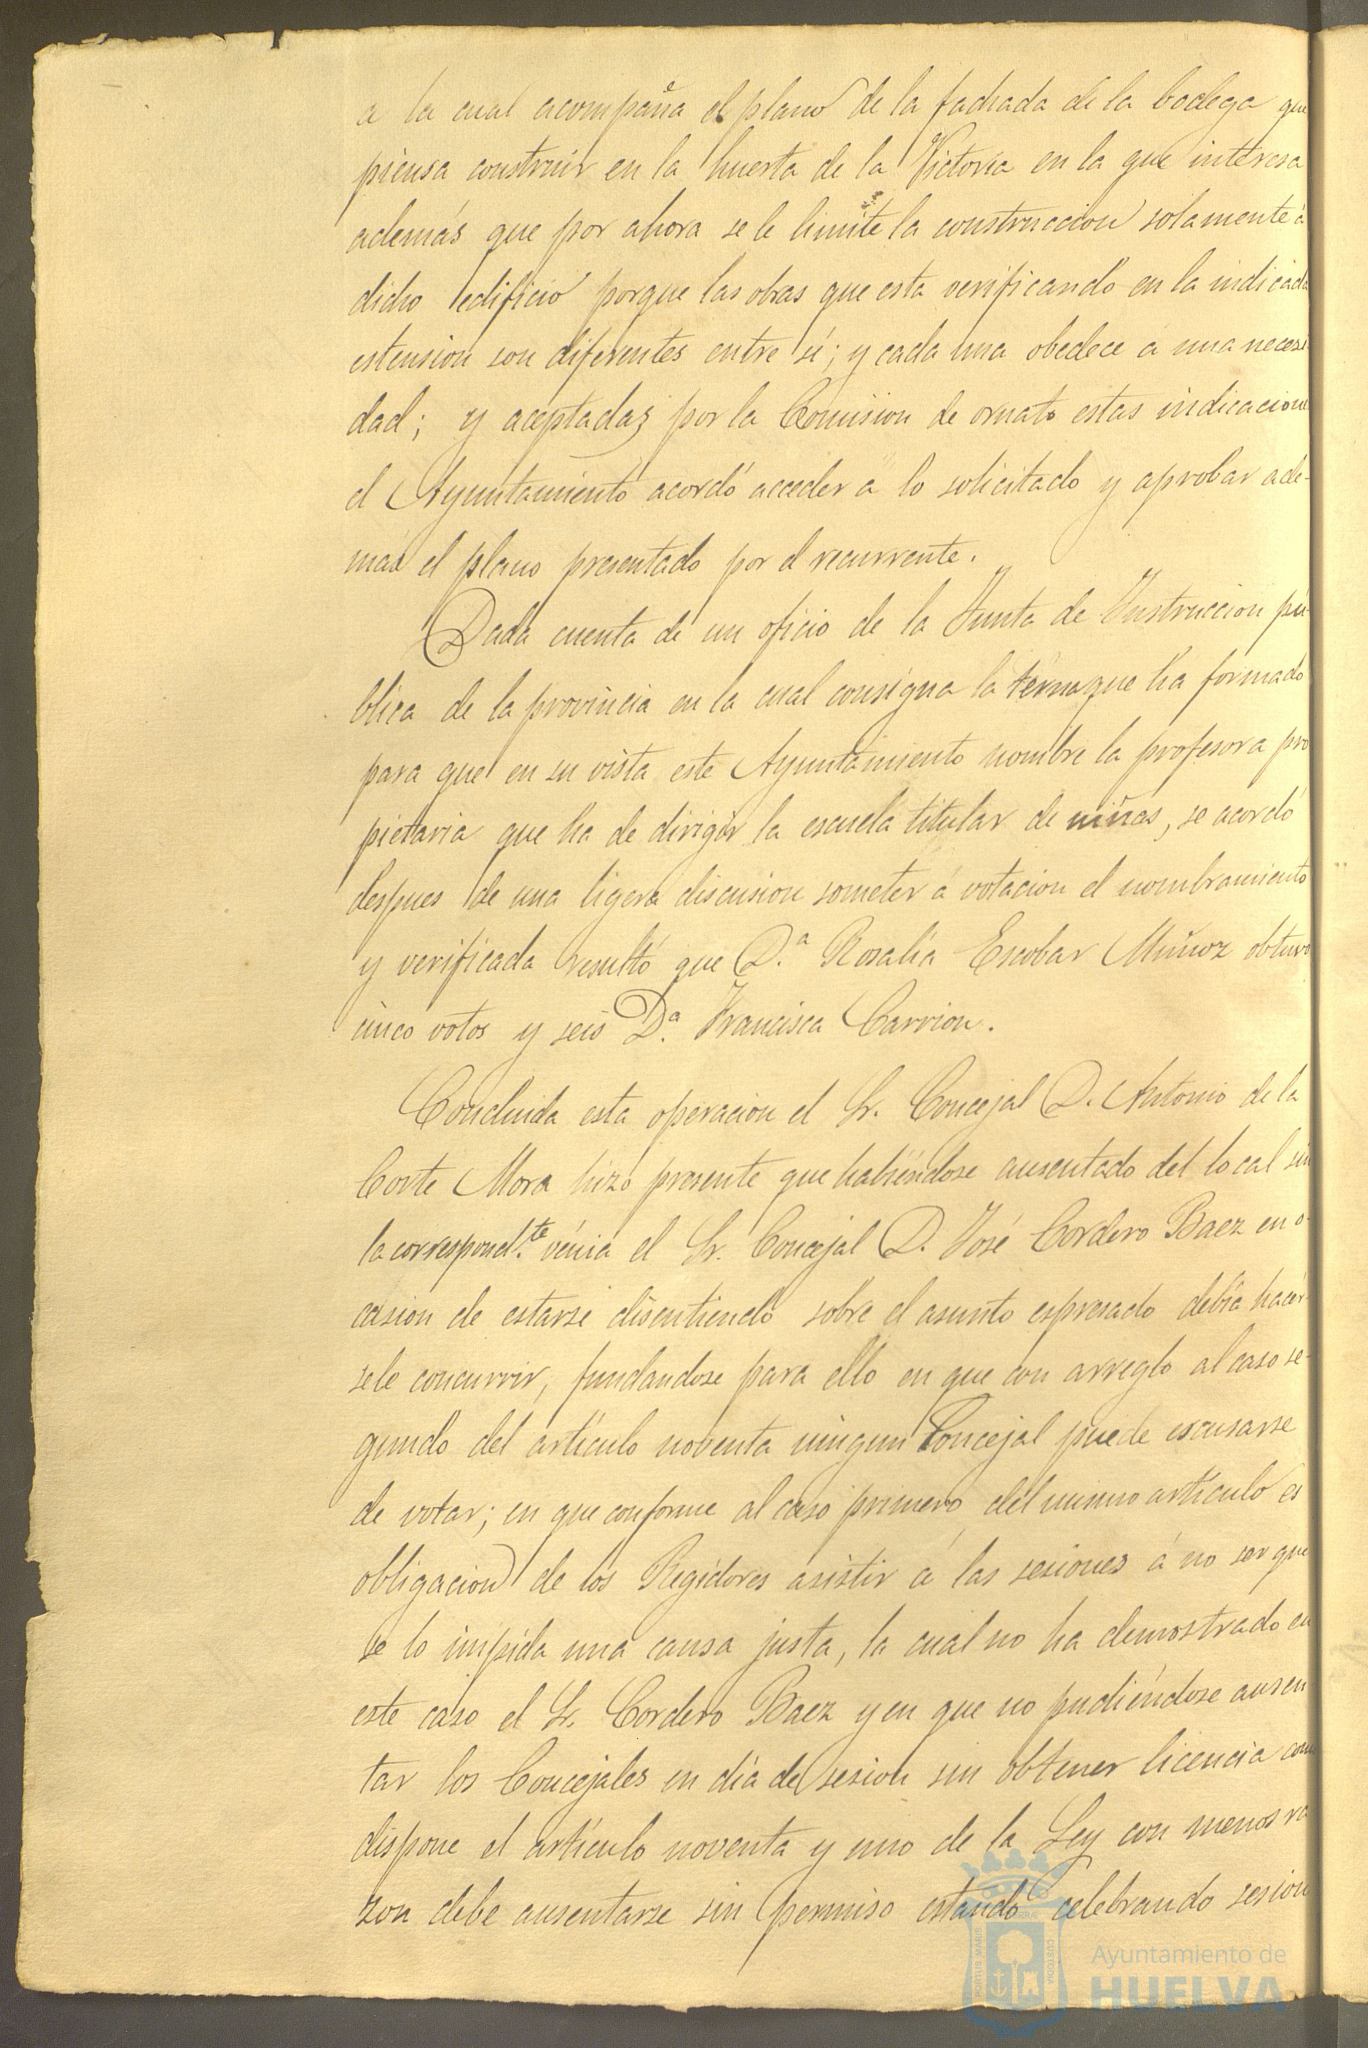 a la cual acompaña el plano de la fachada de la bodega que
piensa construir en la huerta de la Victoria en la que interesa
además que por ahora se le limite la construccion solamente á
dicho edificio porque las obras que esta verificando en la indicada
estension son diferentes entre sí; y cada una obedece á una necesi
dad; y aceptadas por la Comision de ornato estas indicaciones
el Ayuntamiento acordó acceder á lo solicitado y aprobar ade-
más el plano presentado por el recurrente.
Dada cuenta de un oficio de la Junta de Instruccion pú-
blica de la provincia en la cual consigna la terna que ha formado
para que en su vista este Ayuntamiento nombre la profesora pro
pietaria que ha de dirigir la escuela titular de niñas, se acordó
despues de una ligera discusion someter á votacion el nombramiento
y verificada resultó que D.ª Rosalía Escobar Muñoz obtuvo
cinco votos y seis D.ª Francisca Carrion.
Concluida esta operacion el Sr. Concejal D. Antonio de la
Corte Mora hizo presente que habiéndose ausentado del local sin
la correspond.te vénia el Sr. Concejal D. José Cordero Baez en o-
casion de estarse discutiendo sobre el asunto espresado debia hacér-
sele concurrir, fundandose para ello en que con arreglo al caso se-
gundo del artículo noventa ningun Concejal puede escusarse
de votar; en que conforme al caso primero del mismo artículo es
obligacion de los Regidores asistir á las sesiones á no ser que
se lo impida una causa justa, la cual no ha demostrado en
este caso el Sr. Cordero Baez y en que no pudiéndose ausen
tar los Concejales en dia de sesion sin obtener licencia como
dispone el artículo noventa y uno de la Ley con menos ra
zon debe ausentarse sin permiso estando celebrando sesion
Ayuntamiento de
HUELVA